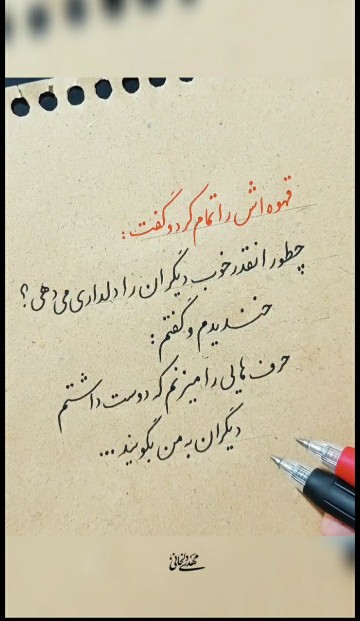 قهوه اش را تمام کرد و گفت :
چطور انقدر خوب دیگران را دلداری می دهی ؟
خندیدم و گفتم :
حرف هایی را میزنم که دوست داشتم
دیگران به من بگویند ...